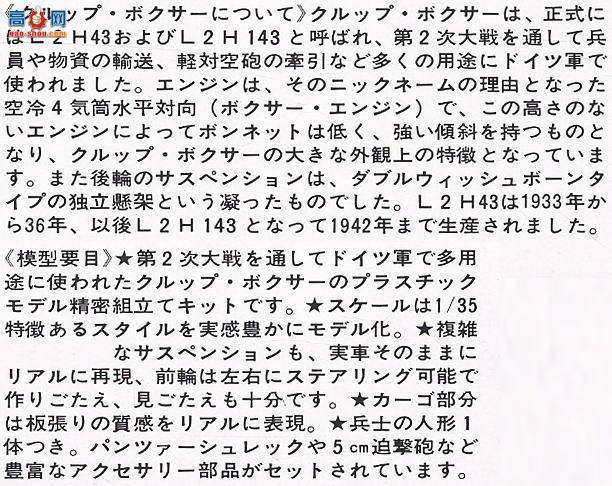 《クルップ・ボクサーについて》クルップ・ボクサーは、正式に
はL2H43およびL2H143と呼ばれ、第2次大戦を通して兵
員や物資の輸送、軽対空砲の牽引など多くの用途にドイツ軍で
使われました。エンジンは、そのニックネームの理由となった
空冷4気筒水平対向(ボクサー・エンジン)で、この高さのな
いエンジンによってボンネットは低く、強い傾斜を持つものと
なり、クルップ・ボクサーの大きな外観上の特徴となっていま
す。また後輪のサスペンションは、ダブルウィッシュボーンタ
イプの独立懸架という凝ったものでした。L2H43は1933年か
ら36年、以後L2H143となって1942年まで生産されました。
《模型要目》★第2次大戦を通してドイツ軍で多用
途に使われたクルップ・ボクサーのプラスチック
モデル精密組立てキットです。★スケールは1/35
特徴あるスタイルを実感豊かにモデル化。★複雑
なサスペンションも、実車そのままに
リアルに再現、前輪は左右にステアリング可能で
作りごたえ、見ごたえも十分です。★カーゴ部分
は板張りの質感をリアルに表現。★兵士の人形1
体つき。パンツァーシュレックや5cm迫撃砲など
豊富なアクセサリー部品がセットされています。